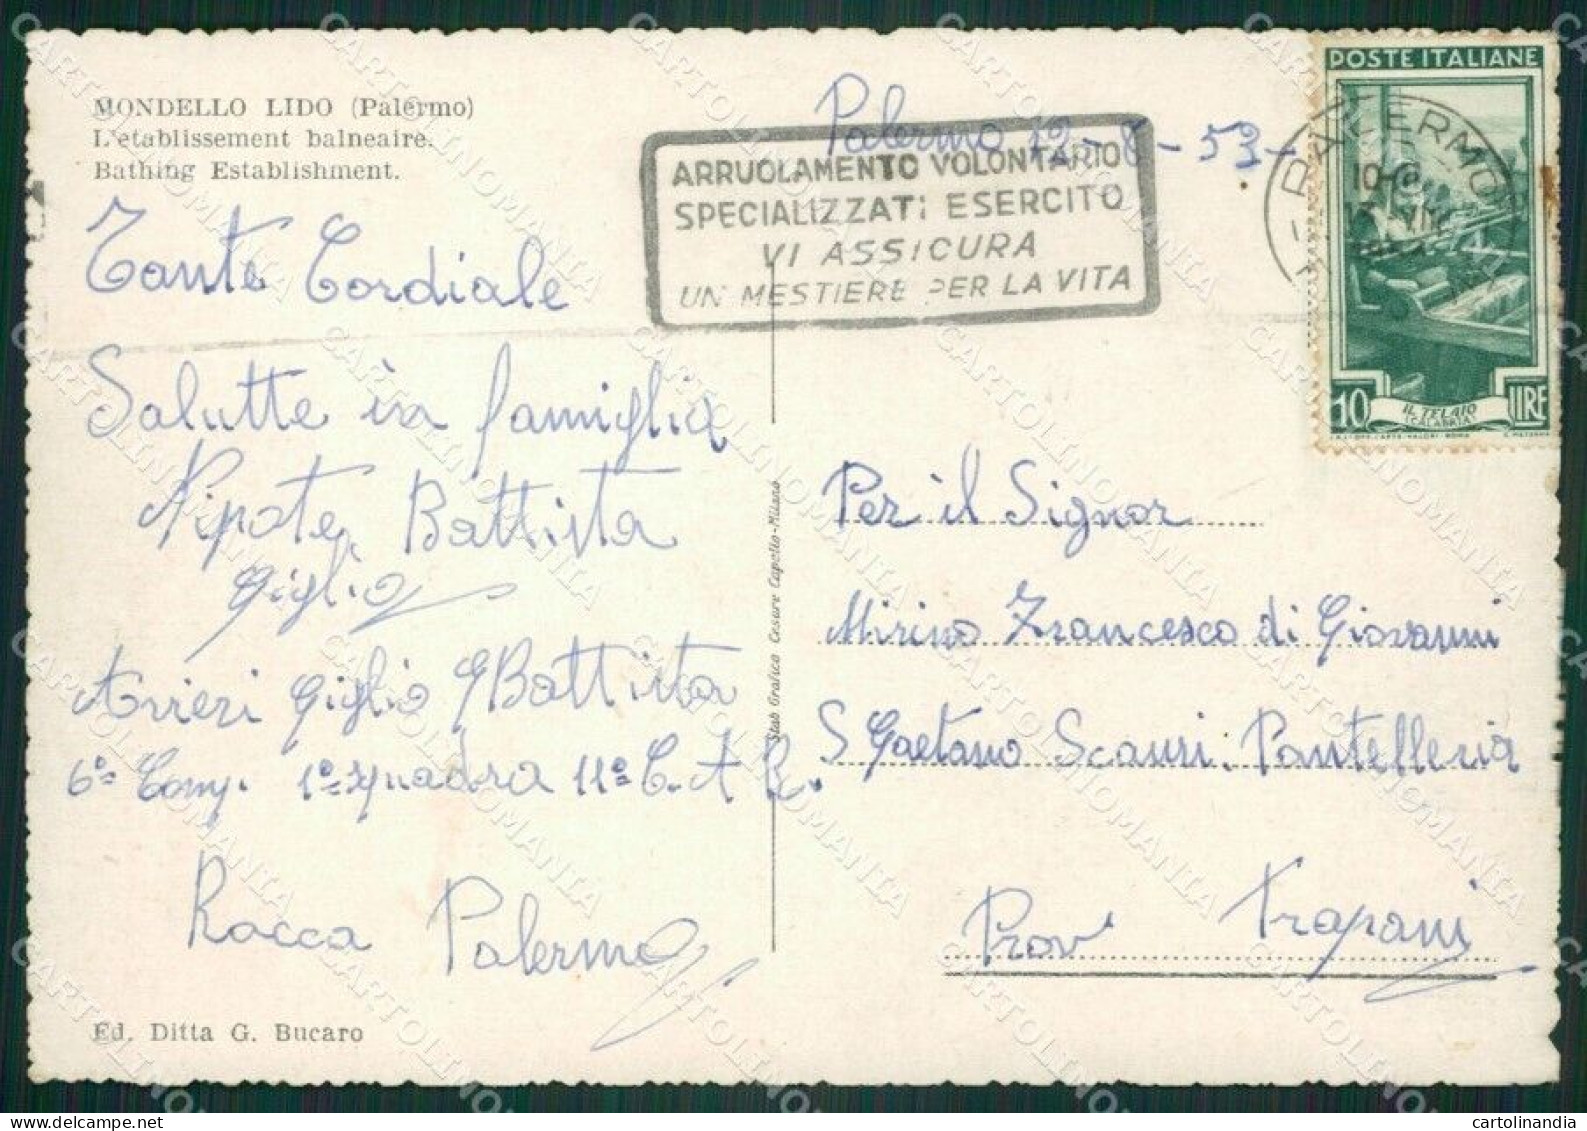 MONDELLO LIDO (Palermo)
L'etablissement balneaire.
Bathing Establishment.
Palermo 12-8-53-
ARRUOLAMENTO VOLONTARIO
SPECIALIZZATI ESERCITO
VI ASSICURA
UN MESTIERE PER LA VITA
POSTE ITALIANE
PALERMO
10 IL TELAIO LIRE
CALABRIA
Tante Cordiale
Salutte in famiglia
Nipote Battista
Giglio
Avieri Giglio GBattista
6º Comp. 1º squadra 11º C.A.R.
Rocca Palermo
Ed. Ditta G. Bucaro
Stab Grafico Cesare Capello-Milano
Per il Signor
Mirino Francesco di Giovanni
S Gaetano Scauri. Pantelleria
Prov Trapani
CARTOLINOMANIA
cartolinandia